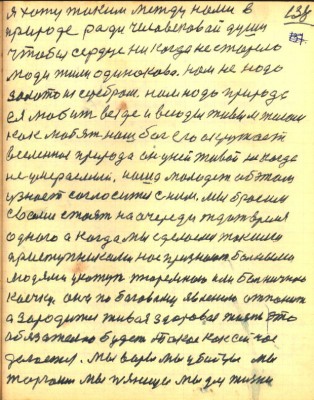 я хочу таким между нами в 138
природе ради человеческой души
чтобы сердце никогда не старело
люди жили одинаково. нам не надо
золото и серебром. нам надо природа
ея любить везде и всюды живым телом
как любят наш бог его окружает
вселенная природа он у ней живой никогда
не умерающий. наша молодеж об этом
узнает согласится с ним. мы бросим
своими стоят на очереди ждать время
одного а когда мы сделаем такими
преступниками нас признают больными
людями укотут тюремною или больничною
койчку. она по баговому явлению отпонит
а зародится живая здоровая жизть это
обязательно будет такое как сейчас
делается. мы воры мы убийцы мы
торгаши мы пяницы мы для жизни